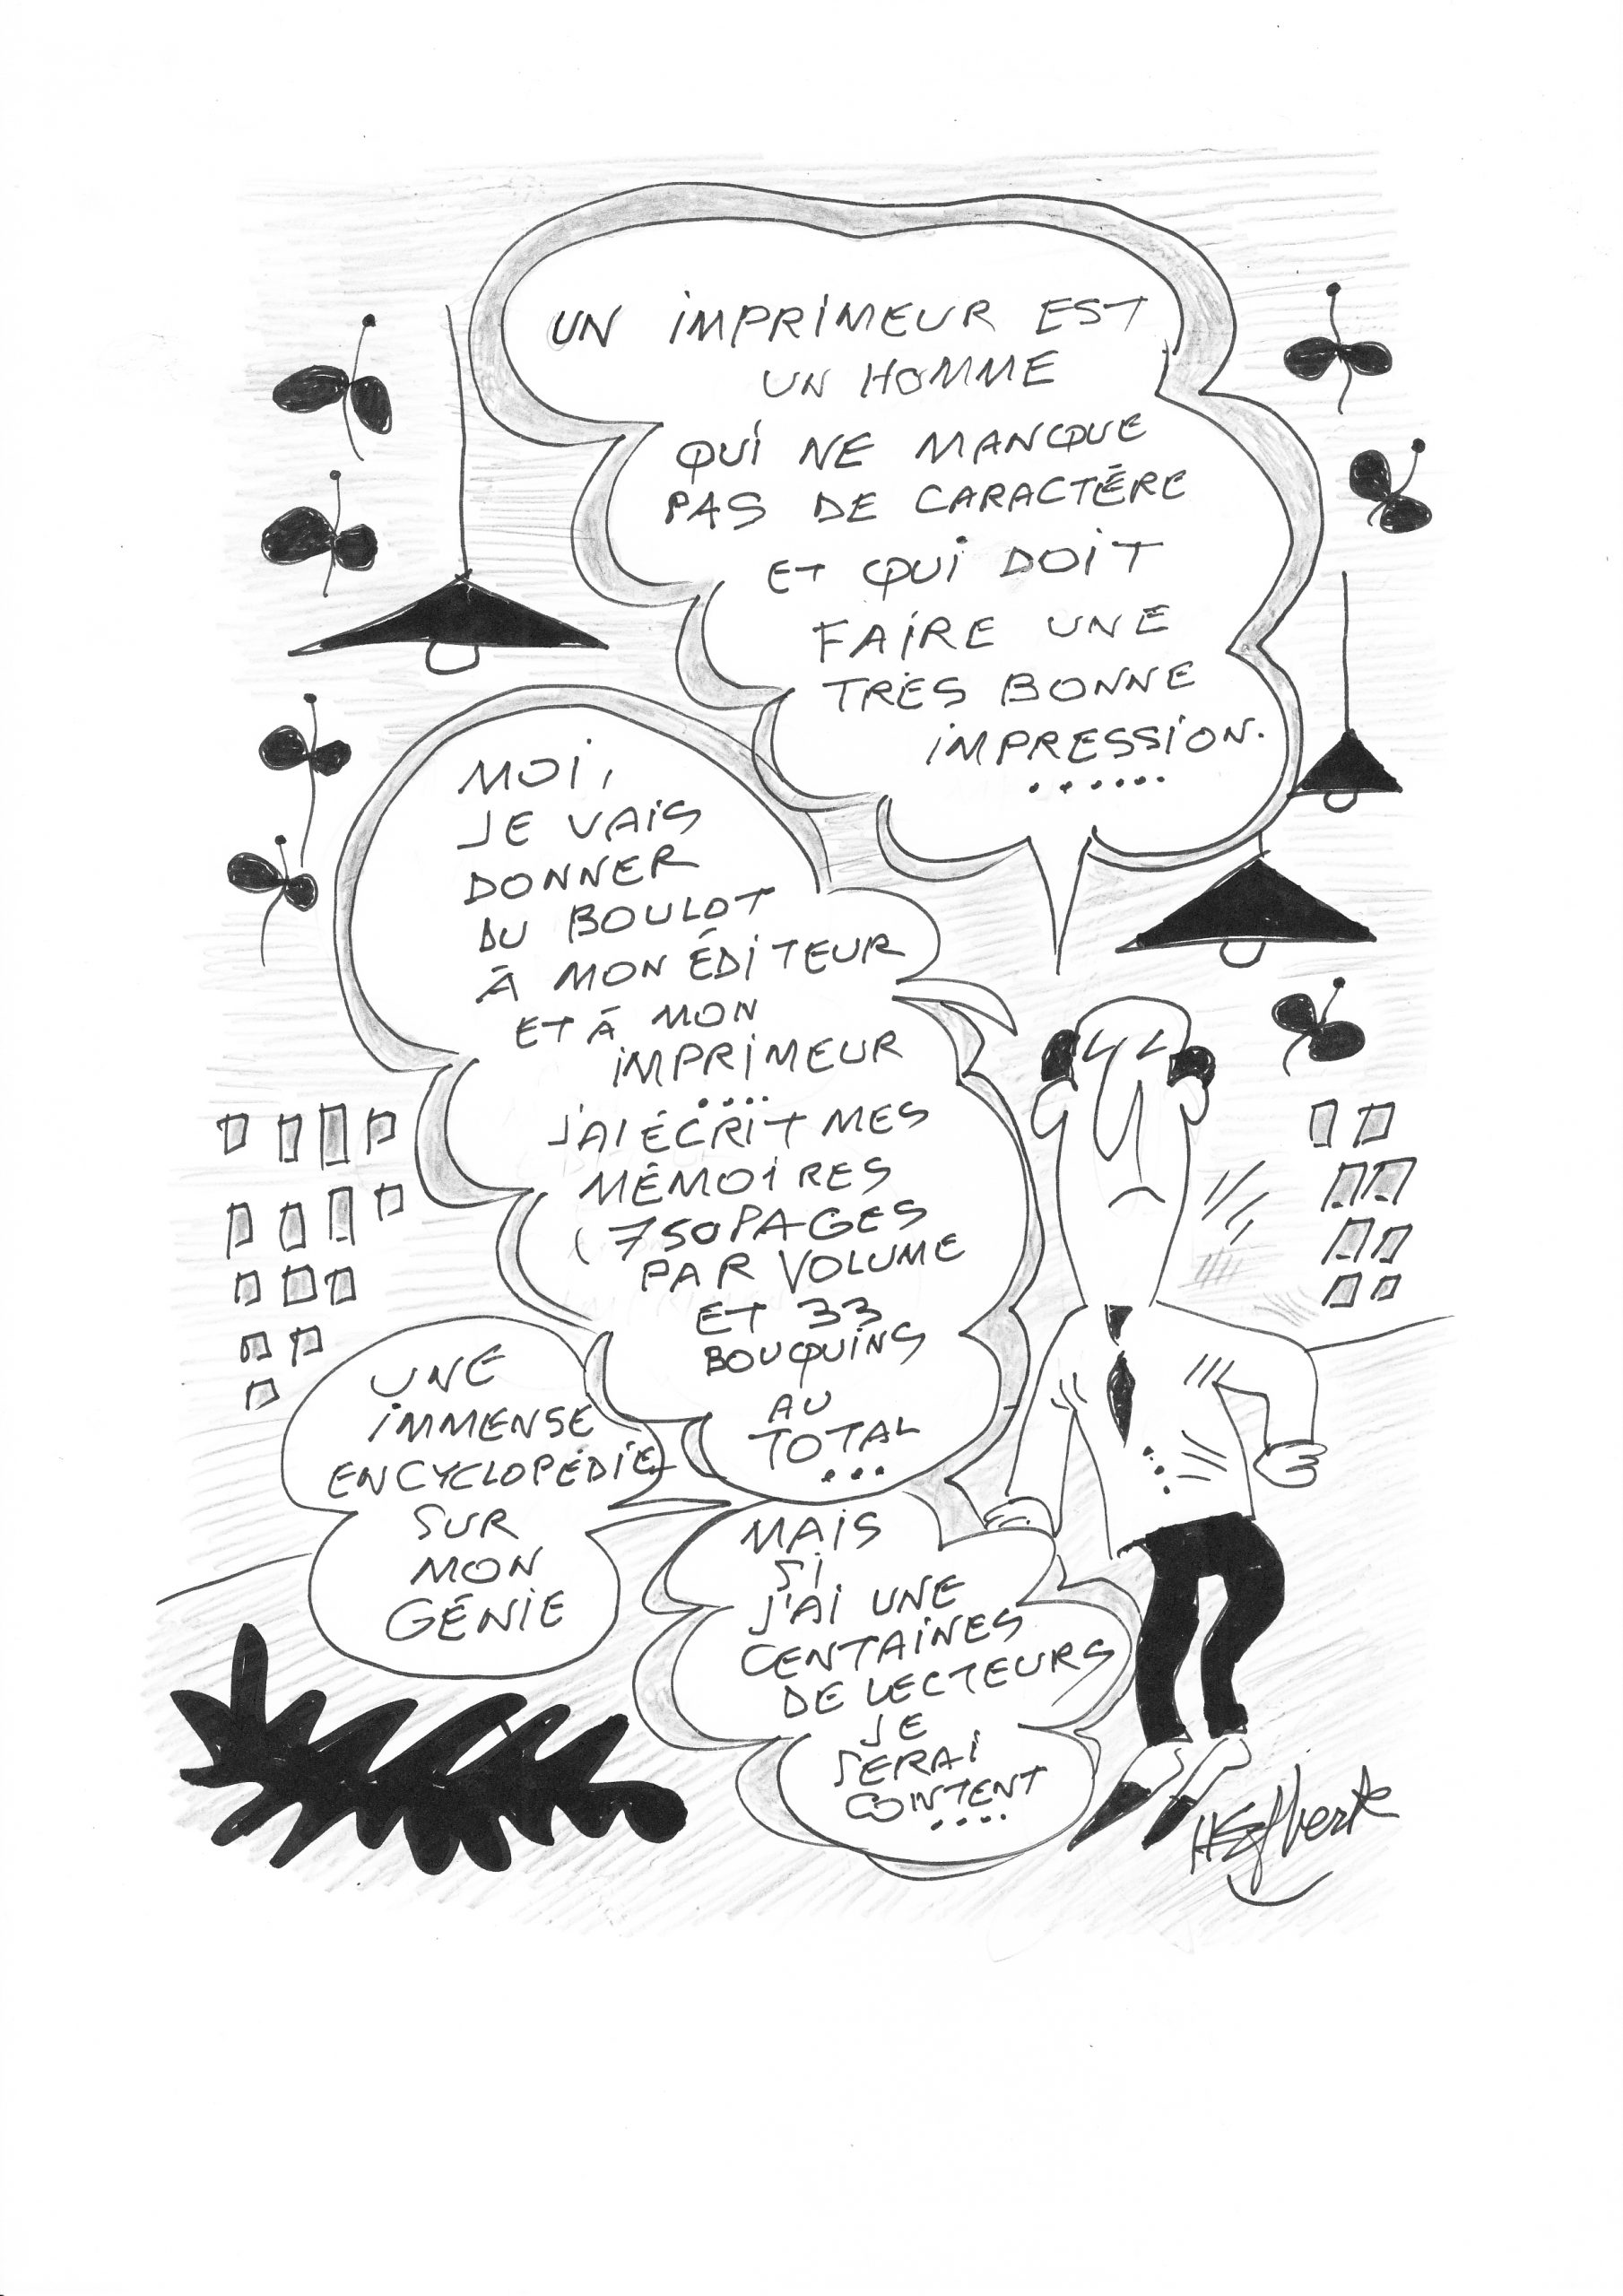 UN IMPRIMEUR EST
UN HOMME
QUI NE MANQUE
PAS DE CARACTÈRE
ET QUI DOIT
FAIRE UNE
TRÈS BONNE
IMPRESSION.
......
MOI,
JE VAIS
DONNER
DU BOULOT
À MON ÉDITEUR
ET À MON
IMPRIMEUR
....
J'AI ÉCRIT MES
MÉMOIRES
(750 PAGES
PAR VOLUME
ET 33
BOUQUINS
AU
TOTAL
...
UNE
IMMENSE
ENCYCLOPÉDIE
SUR
MON
GÉNIE
MAIS
SI
J'AI UNE
CENTAINES
DE LECTEURS
JE
SERAI
CONTENT
....